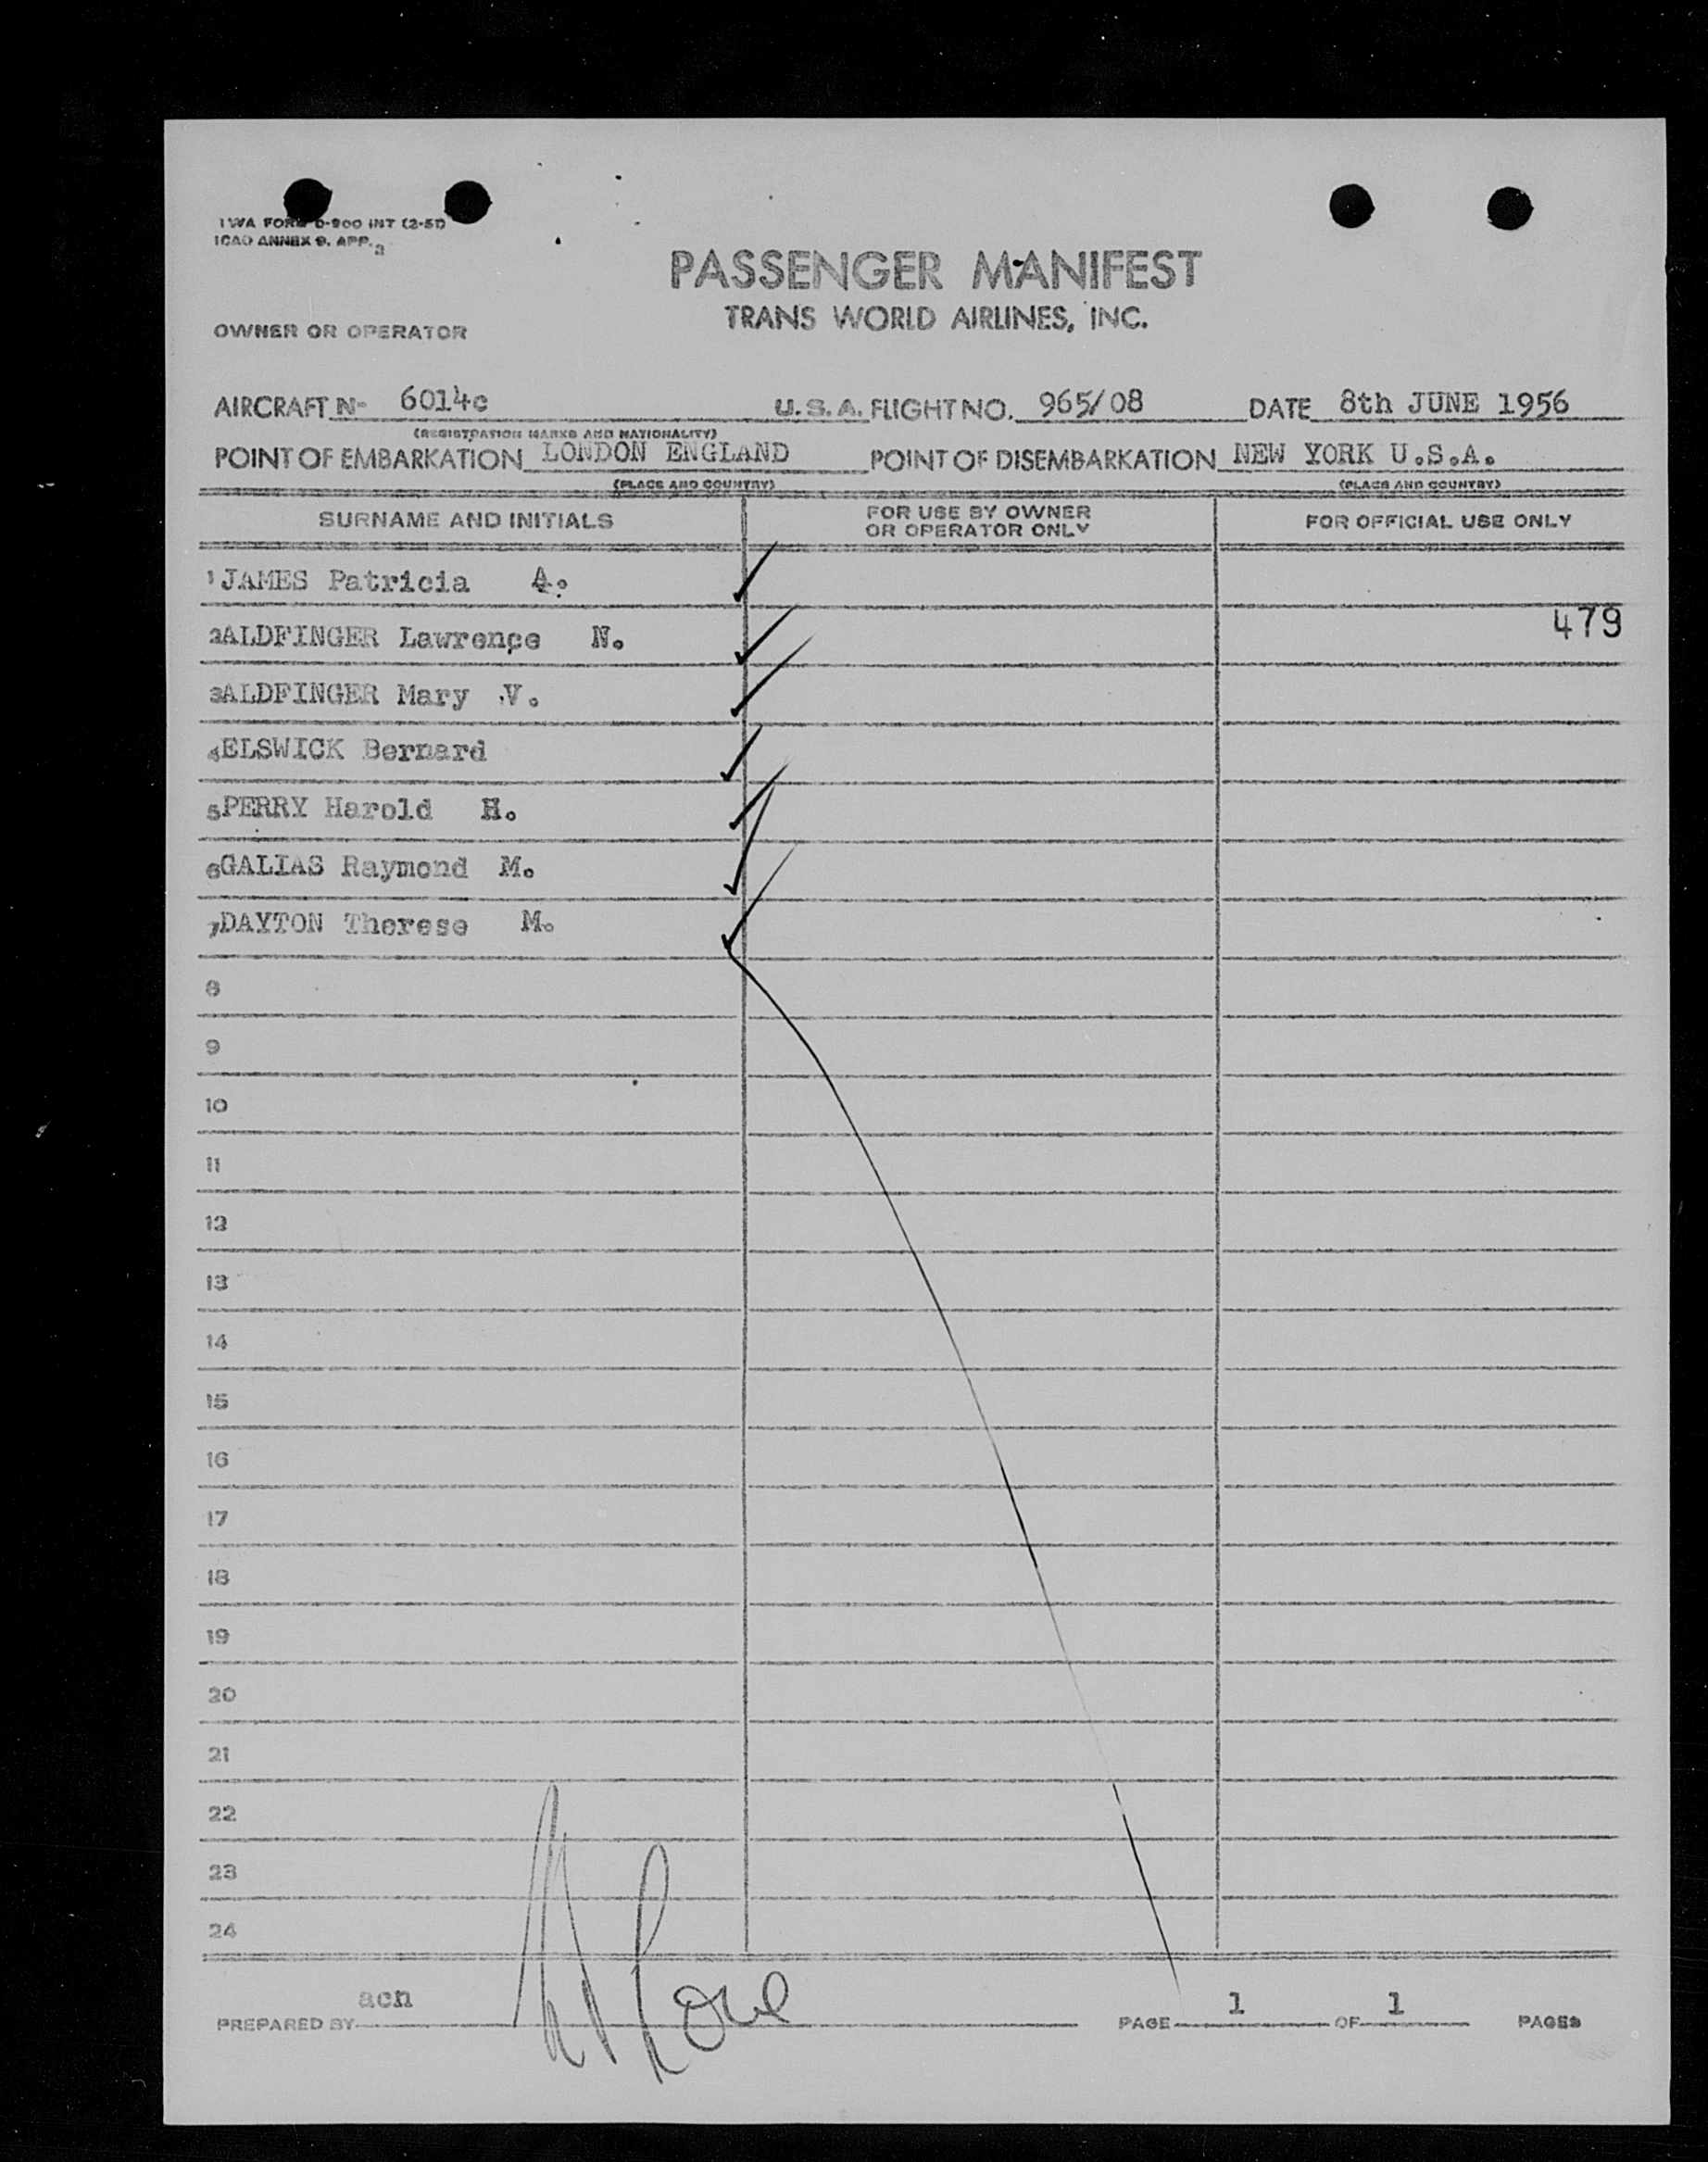 TWA FORM D-900 INT (2-51)
ICAO ANNEX 9. APP. 3
PASSENGER MANIFEST
TRANS WORLD AIRLINES, INC.
OWNER OR OPERATOR
AIRCRAFT N- 6014c U.S.A. FLIGHT NO. 965/08 DATE 8th JUNE 1956
(REGISTRATION MARKS AND NATIONALITY)
POINT OF EMBARKATION LONDON ENGLAND POINT OF DISEMBARKATION NEW YORK U.S.A.
(PLACE AND COUNTRY) (PLACE AND COUNTRY)
SURNAME AND INITIALS FOR USE BY OWNER OR OPERATOR ONLY FOR OFFICIAL USE ONLY
1 JAMES Patricia A.
479
2 ALDFINGER Lawrence N.
3 ALDFINGER Mary V.
4 ELSWICK Bernard
5 PERRY Harold H.
6 GALIAS Raymond M.
7 DAYTON Therese M.
8
9
10
11
12
13
14
15
16
17
18
19
20
21
22
23
24
PREPARED BY acn PAGE 1 OF 1 PAGES